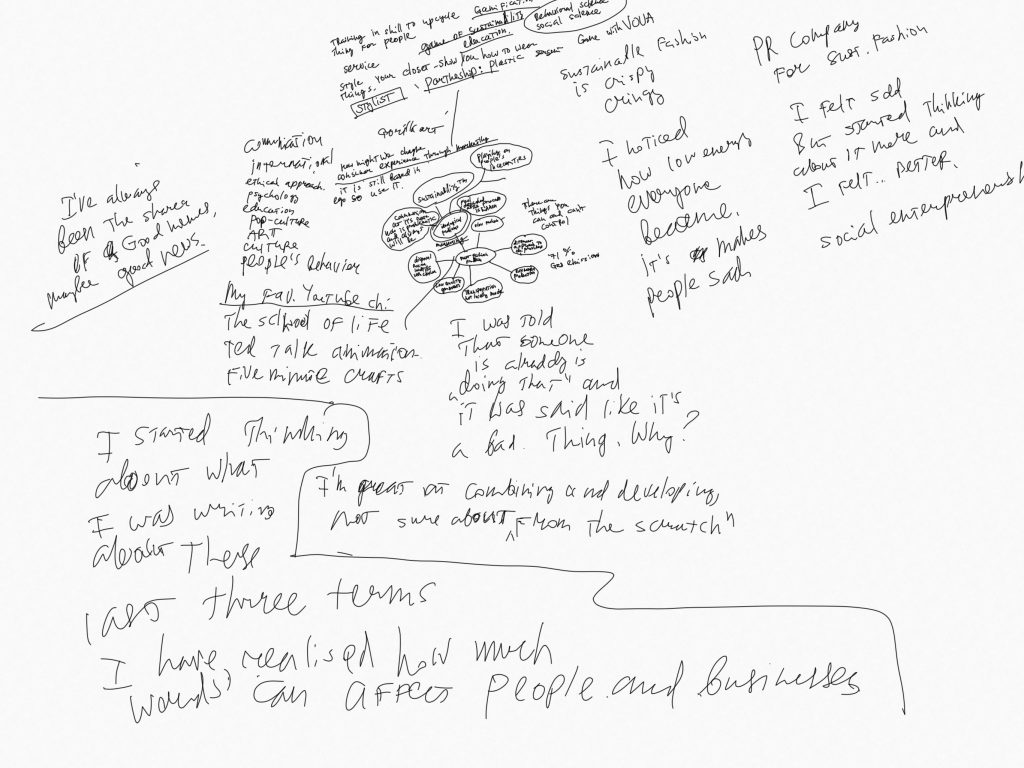 Thinking in skill to upcycle
thing for people
service
Gamification
game of sustainability
education.
Behavioral science
social science
Style your closet - show you how to wear
things.
STYLIST
Partnership: Plastic
Game with VOVA
Sustainable Fashion
is crispy
cringy
PR Company
For sust. Fashion
I felt sad
But started thinking
about it more and
I felt.. better.
social entrepreneurship
I noticed
how low energy
everyone
become.
it's makes
people sad
I've always
been the sharer
of good memes,
maybe good news.
Communication
international
ethical approach
psychology
education
Pop-culture
ART
culture
people's behavior
how might we change
consumer experience through
it is still based in
ego so use it.
Sustainability
Playing on
people's
insecurities
There are
things you
can and can't
control
71%
Gas emissions
My fav. YouTube ch:
The school of life
Ted talk animation
Five minute crafts
I was told
that someone
is alraddy is
"doing that" and
it was said like it's
a bad thing. Why?
I started thinking
about what
I was writing
about these
last three terms
I have realised how much
words can affect people and businesses
I'm great at combining and developing,
not sure about "from the scratch"